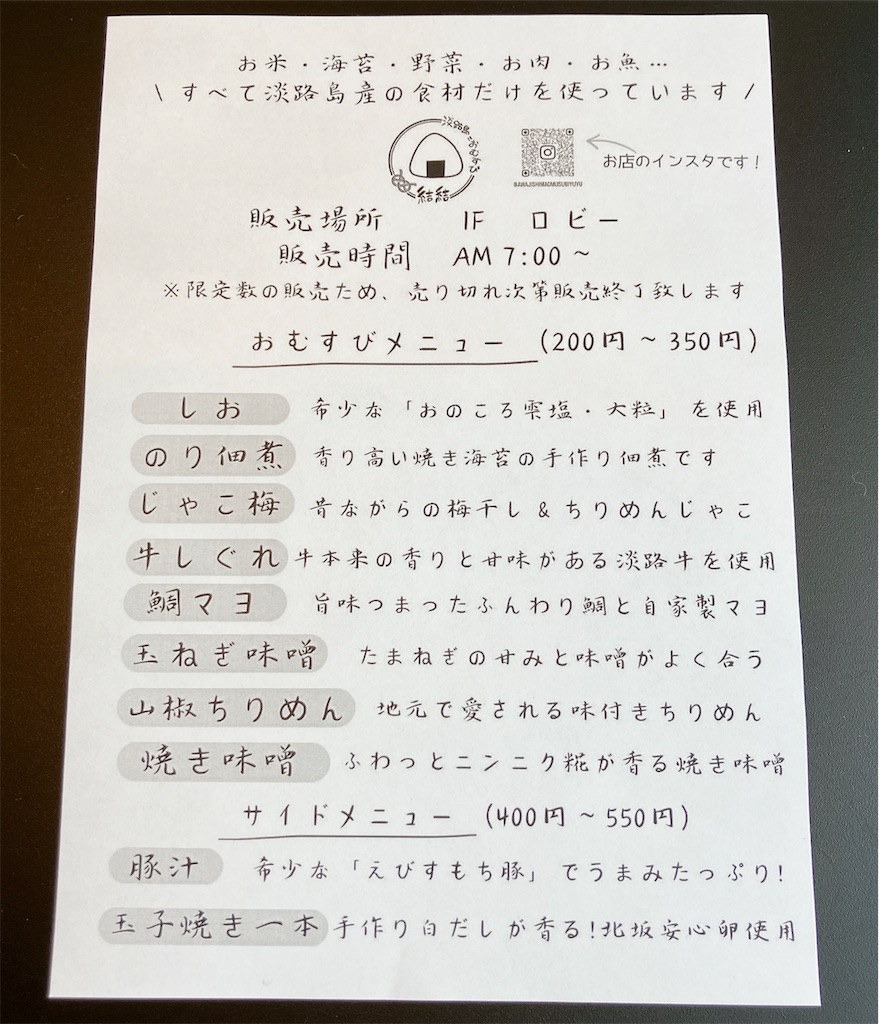 お米・海苔・野菜・お肉・お魚…
\ すべて淡路島産の食材だけを使っています /
淡路島のおむすび
結結
AWAJISHIMAOMUSUBIYUYU
お店のインスタです!
販売場所 1F ロビー
販売時間 AM 7:00 ~
※限定数の販売ため、売り切れ次第販売終了致します
おむすびメニュー (200円 ~ 350円)
しお 希少な「おのころ雫塩・大粒」を使用
のり佃煮 香り高い焼き海苔の手作り佃煮です
じゃこ梅 昔ながらの梅干し & ちりめんじゃこ
牛しぐれ 牛本来の香りと甘味がある淡路牛を使用
鯛マヨ 旨味つまったふんわり鯛と自家製マヨ
玉ねぎ味噌 たまねぎの甘みと味噌がよく合う
山椒ちりめん 地元で愛される味付きちりめん
焼き味噌 ふわっとニンニク糀が香る焼き味噌
サイドメニュー (400円 ~ 550円)
豚汁 希少な「えびすもち豚」でうまみたっぷり!
玉子焼き一本 手作り白だしが香る!北坂安心卵使用